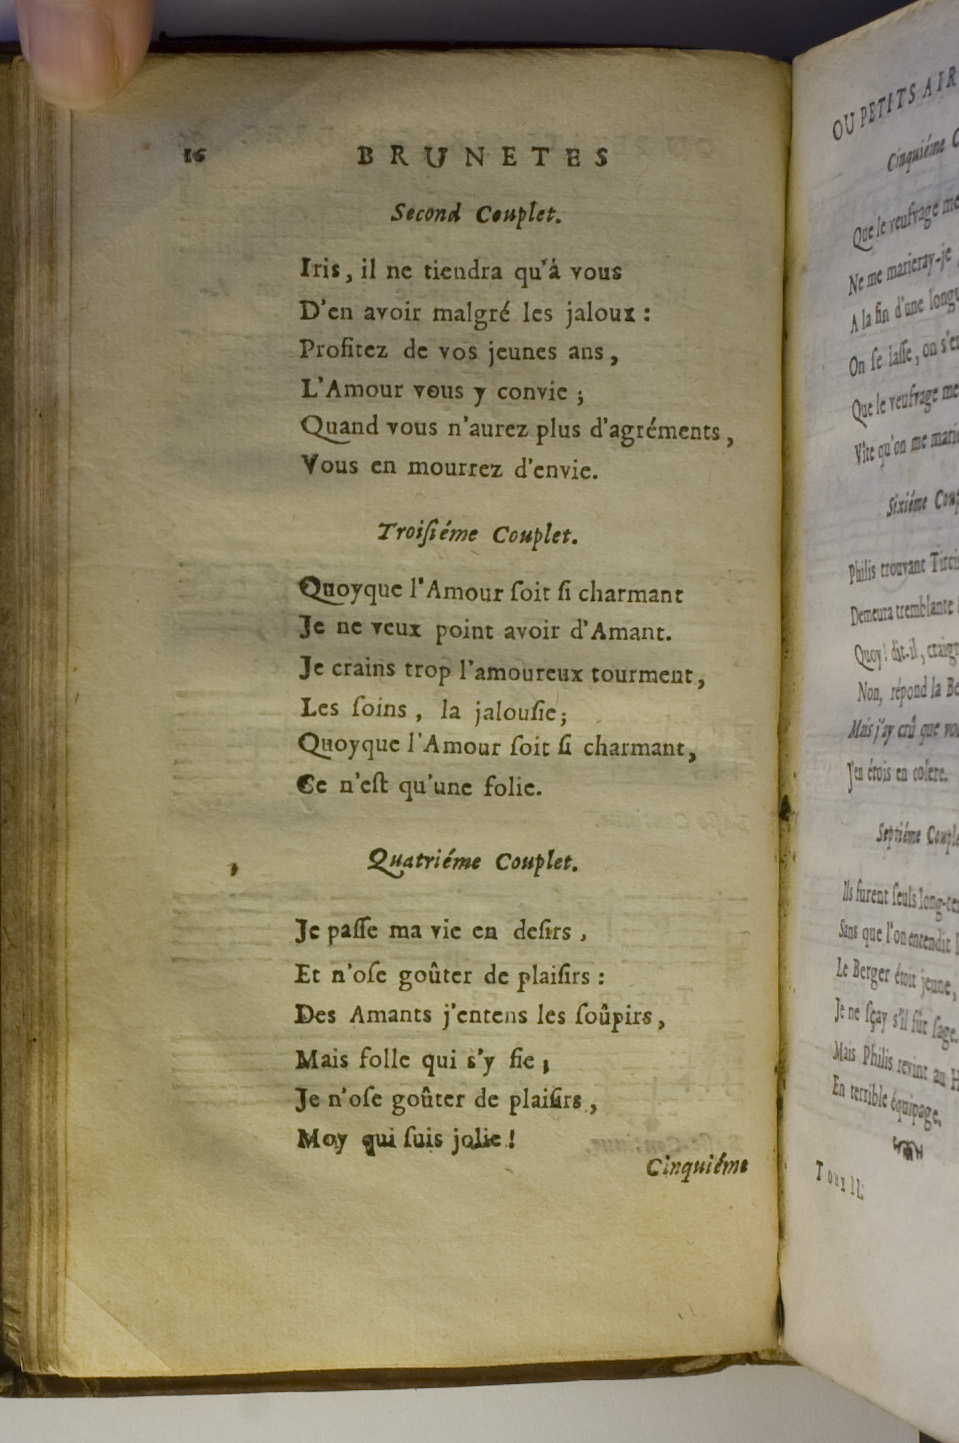 16 BRUNETES
Second Couplet.
Iris, il ne tiendra qu'à vous
D'en avoir malgré les jaloux :
Profitez de vos jeunes ans,
L'Amour vous y convie ;
Quand vous n'aurez plus d'agréments,
Vous en mourrez d'envie.
Troiſiéme Couplet.
Quoyque l'Amour ſoit ſi charmant
Je ne veux point avoir d'Amant.
Je crains trop l'amoureux tourment,
Les ſoins, la jalouſie;
Quoyque l'Amour ſoit ſi charmant,
Ce n'eſt qu'une folie.
Quatriéme Couplet.
Je paſſe ma vie en deſirs,
Et n'oſe goûter de plaiſirs :
Des Amants j'entens les ſoûpirs,
Mais folle qui s'y fie ;
Je n'oſe goûter de plaiſirs,
Moy qui ſuis jolie !
Cinquiéme
OU PETITS AIR
Cinquiéme C
Que le veufvage me
Ne me marieray-je
A la fin d'une longu
On ſe laſſe, on s'en
Que le veufvage me
Vîte qu'on me marie
Sixiéme Coup
Philis trouvant Tircis
Demeura tremblante
Quoy! dit-il, craign
Non, répond la Be
Mais j'ay crû que vo
J'en étois en colere.
Septiéme Couple
Ils furent ſeuls long-te
Sans que l'on entendit
Le Berger étoit jeune,
Je ne ſçay s'il fût ſage.
Mais Philis revint au H
En terrible équipage.
Tome II.